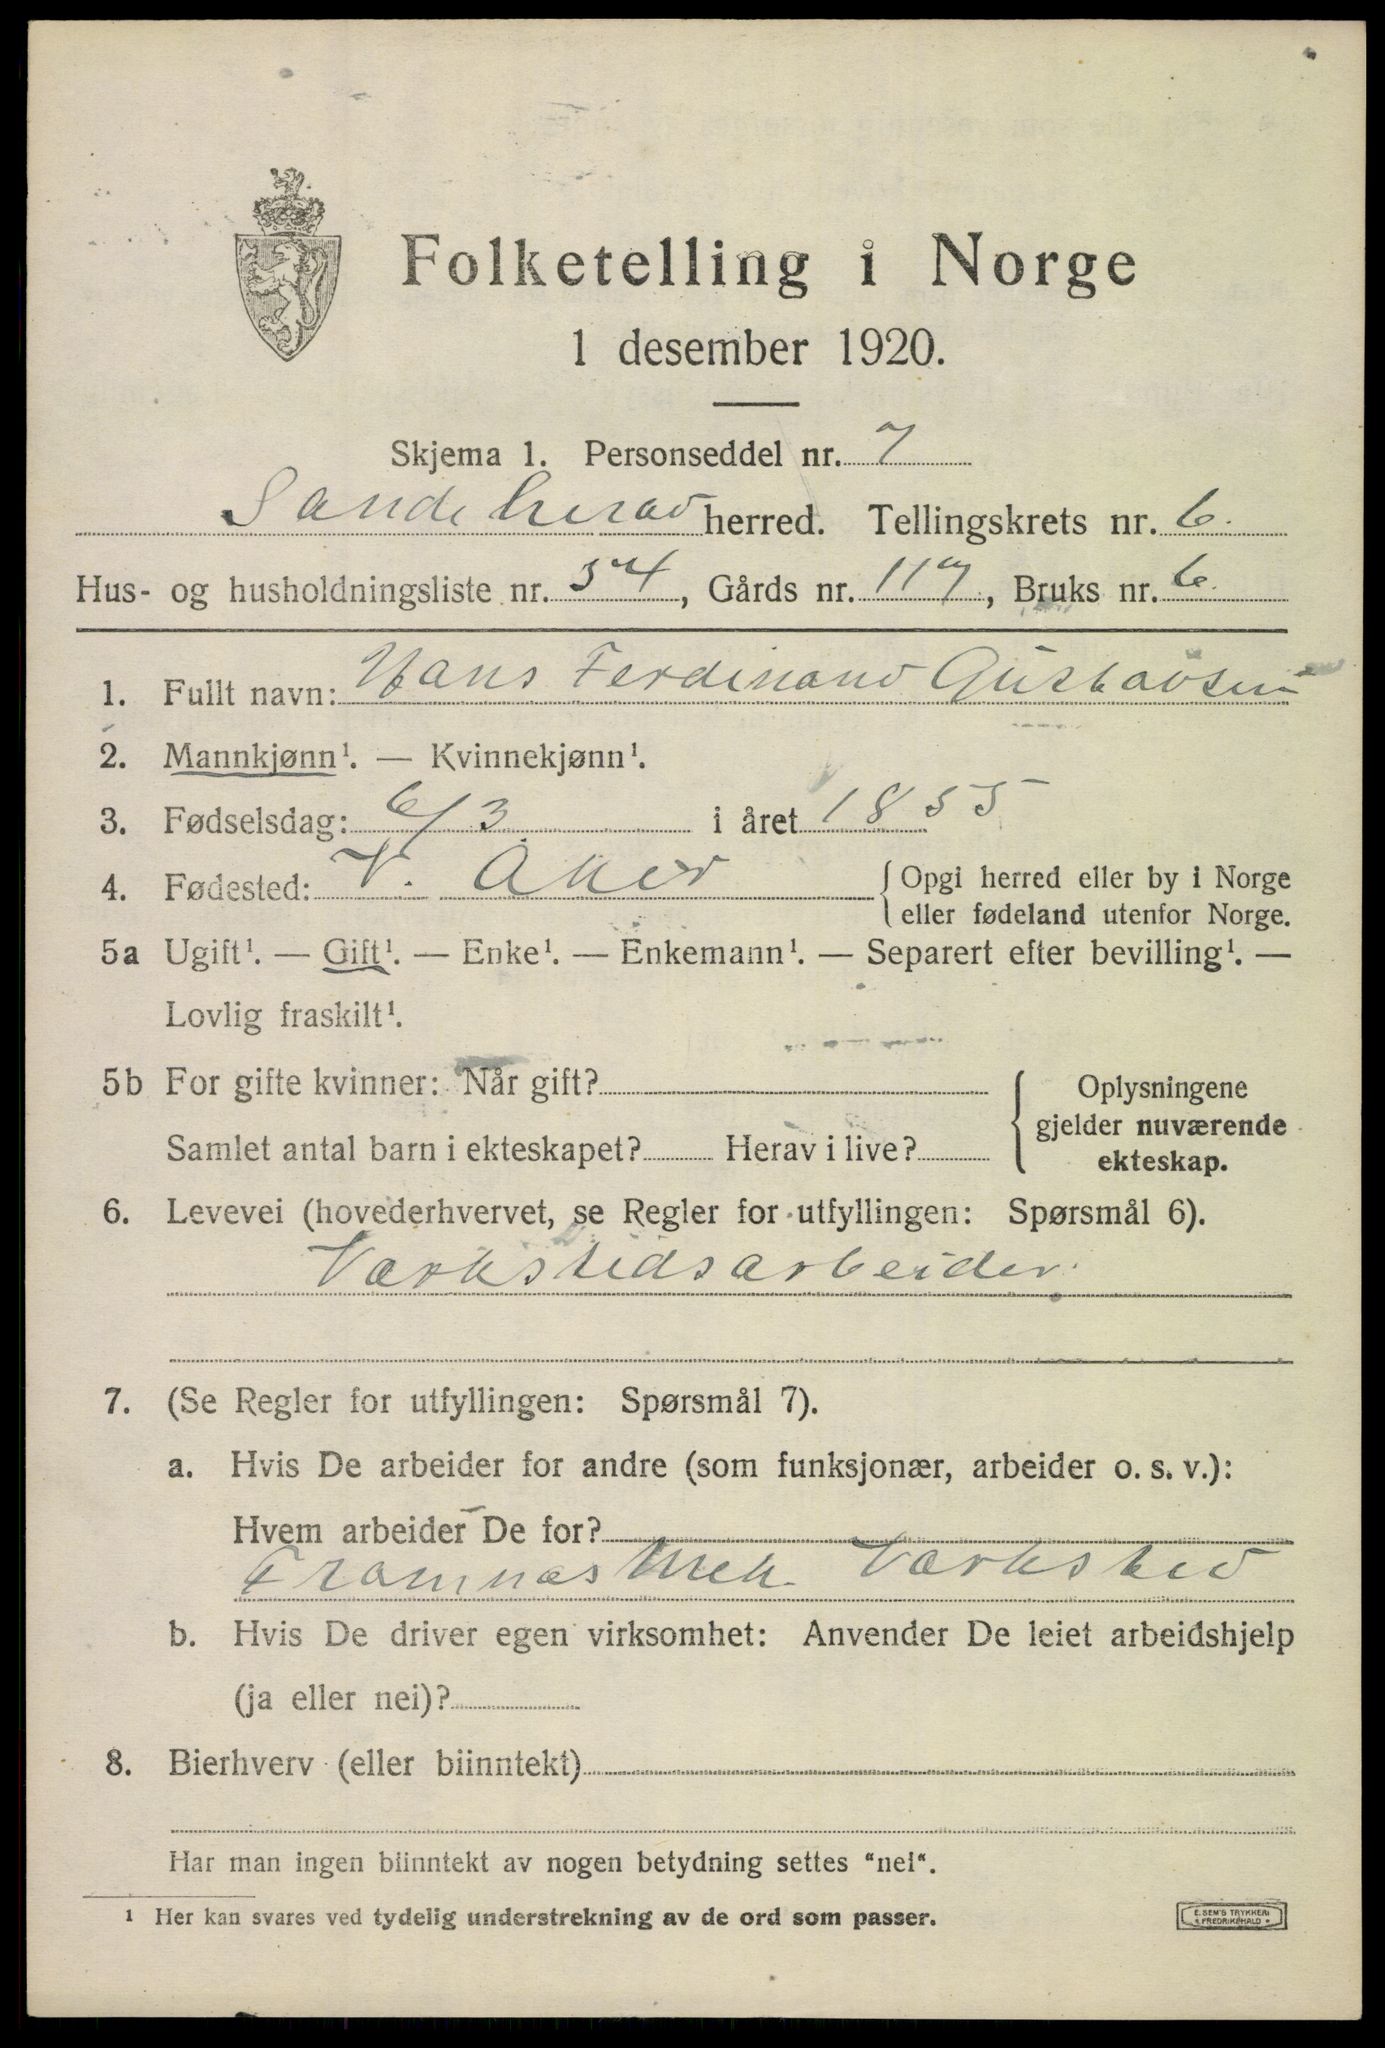 Folketelling i Norge
1 desember 1920.
Skjema 1. Personseddel nr. 7
Sandeherad herred. Tellingskrets nr. 6.
Hus- og husholdningsliste nr. 54, Gårds nr. 117, Bruks nr. 6.
1. Fullt navn: Hans Ferdinand Gustavsen
2. Mannkjønn¹. — Kvinnekjønn¹.
3. Fødselsdag: 6/3 i året 1855
4. Fødested: V. Aker { Opgi herred eller by i Norge
eller fødeland utenfor Norge.
5a Ugift¹. — Gift¹. — Enke¹. — Enkemann¹. — Separert efter bevilling¹. —
Lovlig fraskilt¹.
5b For gifte kvinner: Når gift?
Samlet antal barn i ekteskapet? Herav i live?
Oplysningene
gjelder nuværende
ekteskap.
6. Levevei (hovederhvervet, se Regler for utfyllingen: Spørsmål 6).
Værkstedsarbeider.
7. (Se Regler for utfyllingen: Spørsmål 7).
a. Hvis De arbeider for andre (som funksjonær, arbeider o. s. v.):
Hvem arbeider De for?
Framnæs Mek. Værksted
b. Hvis De driver egen virksomhet: Anvender De leiet arbeidshjelp
(ja eller nei)?
8. Bierhverv (eller biinntekt)
Har man ingen biinntekt av nogen betydning settes "nei".
¹ Her kan svares ved tydelig understrekning av de ord som passer.
E. SEM'S TRYKKERI
FREDRIKSHALD